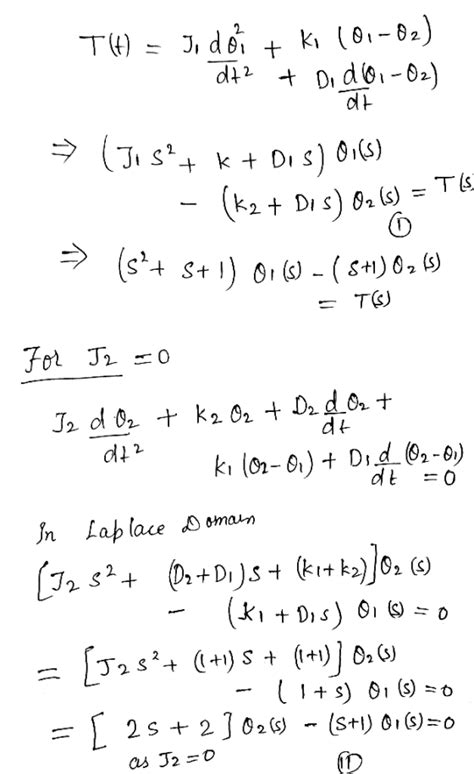 T(t) = J₁ dθ₁²/dt² + K₁ (θ₁-θ₂)
+ D₁ d(θ₁-θ₂)/dt
⇒ (J₁ S² + K + D₁ S) θ₁(S)
- (K₂ + D₁ S) θ₂(S) = T(S
①
⇒ (S² + S+1) θ₁(S) - (S+1) θ₂(S)
= T(S)
For J₂ = 0
J₂ d θ₂/dt² + K₂ θ₂ + D₂ d/dt θ₂ +
K₁ (θ₂-θ₁) + D₁ d/dt (θ₂-θ₁) = 0
In Laplace Domain
[J₂ S² + (D₂+D₁)S + (K₁+K₂)] θ₂(S)
- (K₁ + D₁S) θ₁(S) = 0
= [J₂S² + (1+1) S + (1+1)] θ₂(S)
- (1+S) θ₁(S) = 0
= [ 2S + 2 ] θ₂(S) - (S+1) θ₁(S) = 0
as J₂ = 0 ⑪